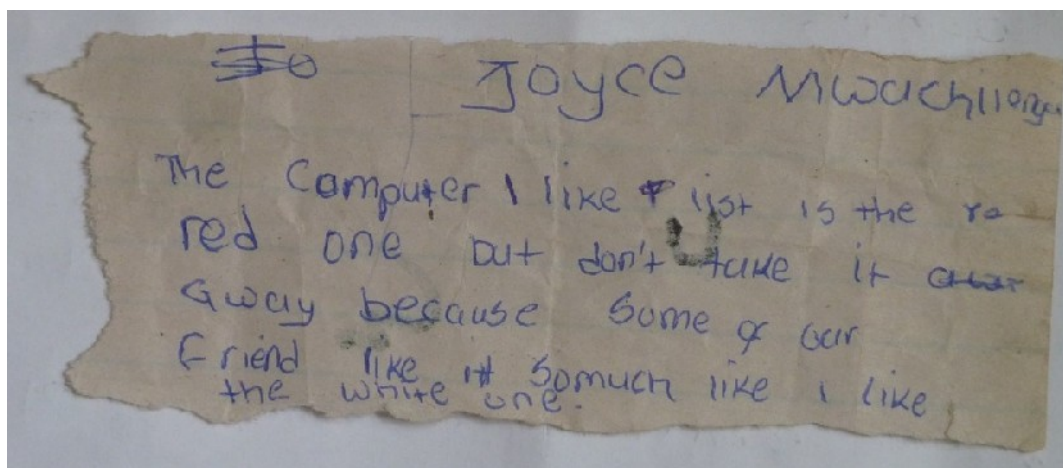 To Joyce Mwachilongo
The Computer I like list is the
red one but don't take it
away because some of our
Friend like it so much like I like
the white one.